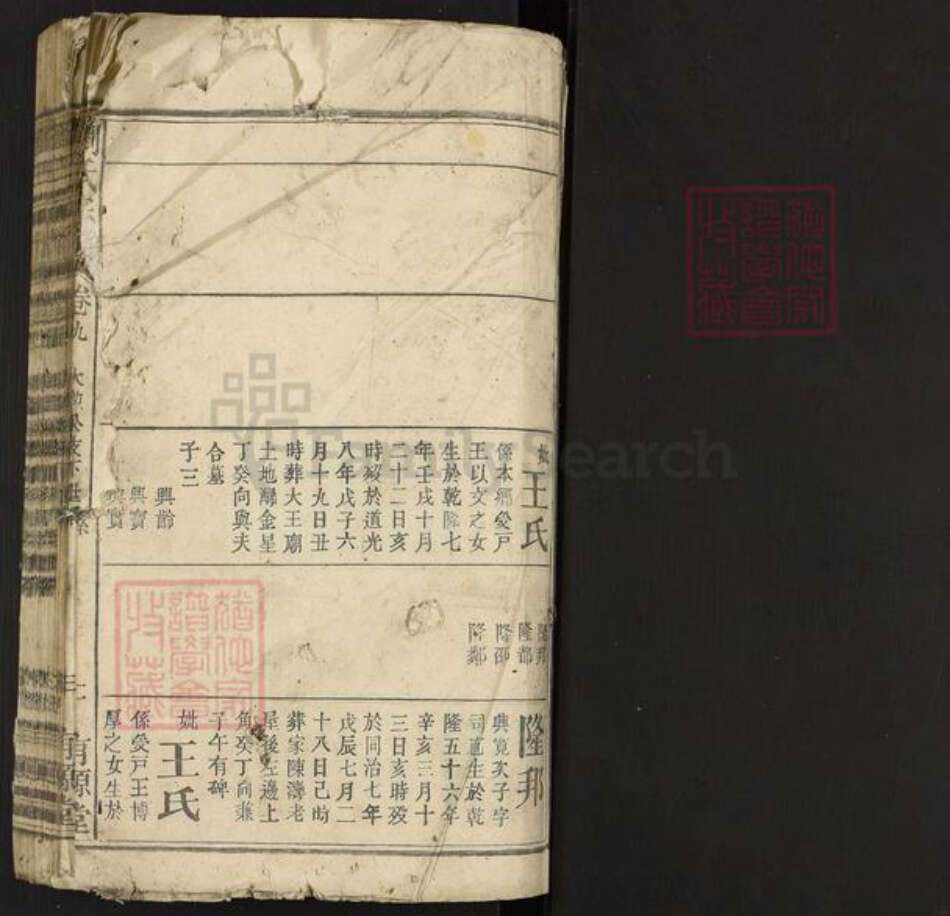 妣王氏
係本鄉愛戸
王以文之女
生於乾隆七
年壬戌十月
二十二日亥
時殁於道光
八年戊子六
月十九日丑
時葬大王廟
土地
金星
丁癸向與夫
合墓
子三
興齡
興寶
隆邦
隆都
隆邵
隆鄰
隆邦
典寬次子字
司直生於乾
隆五十六年
辛亥三月十
三日亥時殁
於同治七年
戊辰七月二
十八日己時
葬家陳灣老
屋後左邊上
角癸丁向兼
子午有碑
妣王氏
係愛戸王博
厚之女生於
卷九
有源堂
譜學會
收藏